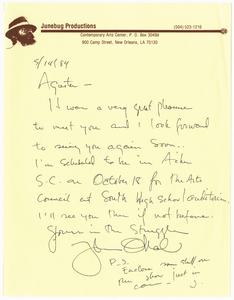 Junebug Productions
(504) 523-1216
Contemporary Arts Center, P. O. Box 30498
900 Camp Street, New Orleans, LA 70130
5/14/84
Agusta -
It was a very great pleasure
to meet you and I look forward
to seeing you again soon..
I'm scheduled to be in Aiken
S.C. on October 18 for the Arts
Council at South High School auditorium.
I'll see you then if not before.
Yours in the Struggle
John O'Neal
P.S.
Enclose some stuff on
the show just in